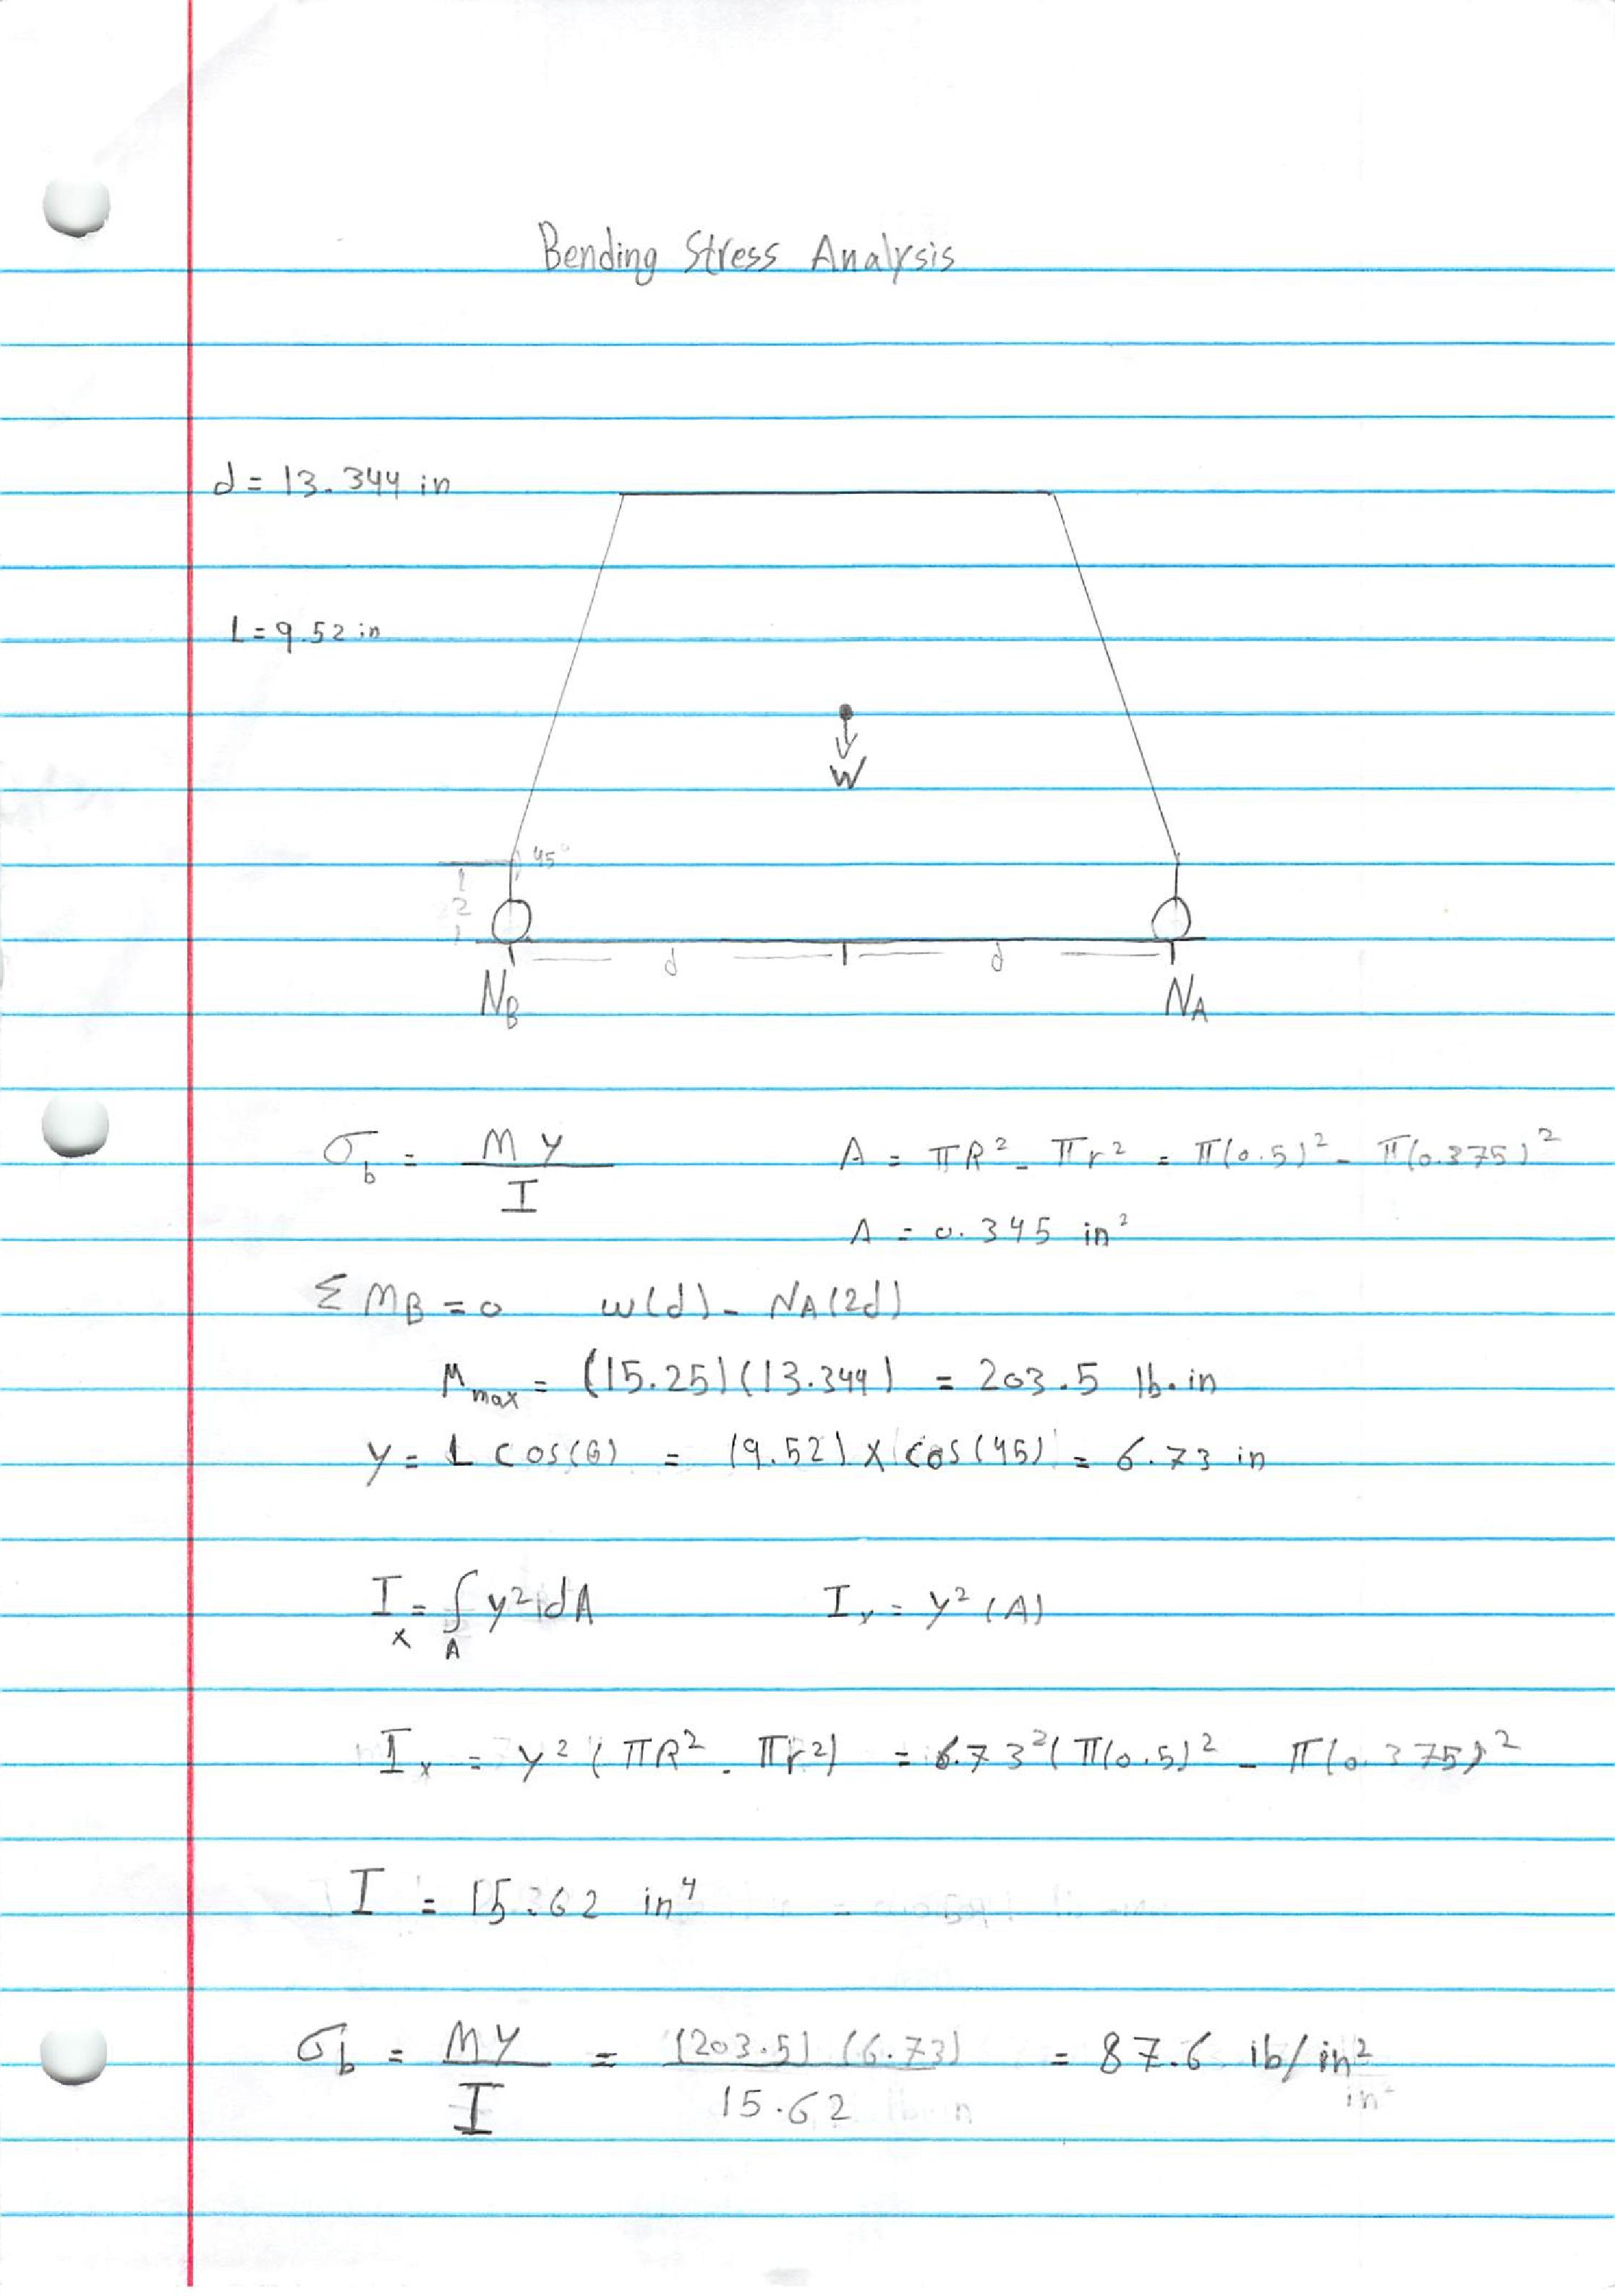 Bending Stress Analysis
d = 13.344 in
L = 9.52 in
W
45°
2
d d
N_B N_A
σ_b = M y / I A = πR² - πr² = π(0.5)² - π(0.375)²
A = 0.345 in²
Σ M_B = 0 w(d) - N_A(2d)
M_max = (15.25)(13.344) = 203.5 lb.in
y = L cos(θ) = (9.52) x cos(45) = 6.73 in
I_x = ∫_A y² dA I_x = y² (A)
I_x = y² (πR² - πr²) = 6.73² (π(0.5)² - π(0.375)²
I = 15.62 in⁴
σ_b = MY / I = (203.5) (6.73) / 15.62 = 87.6 ib/in²